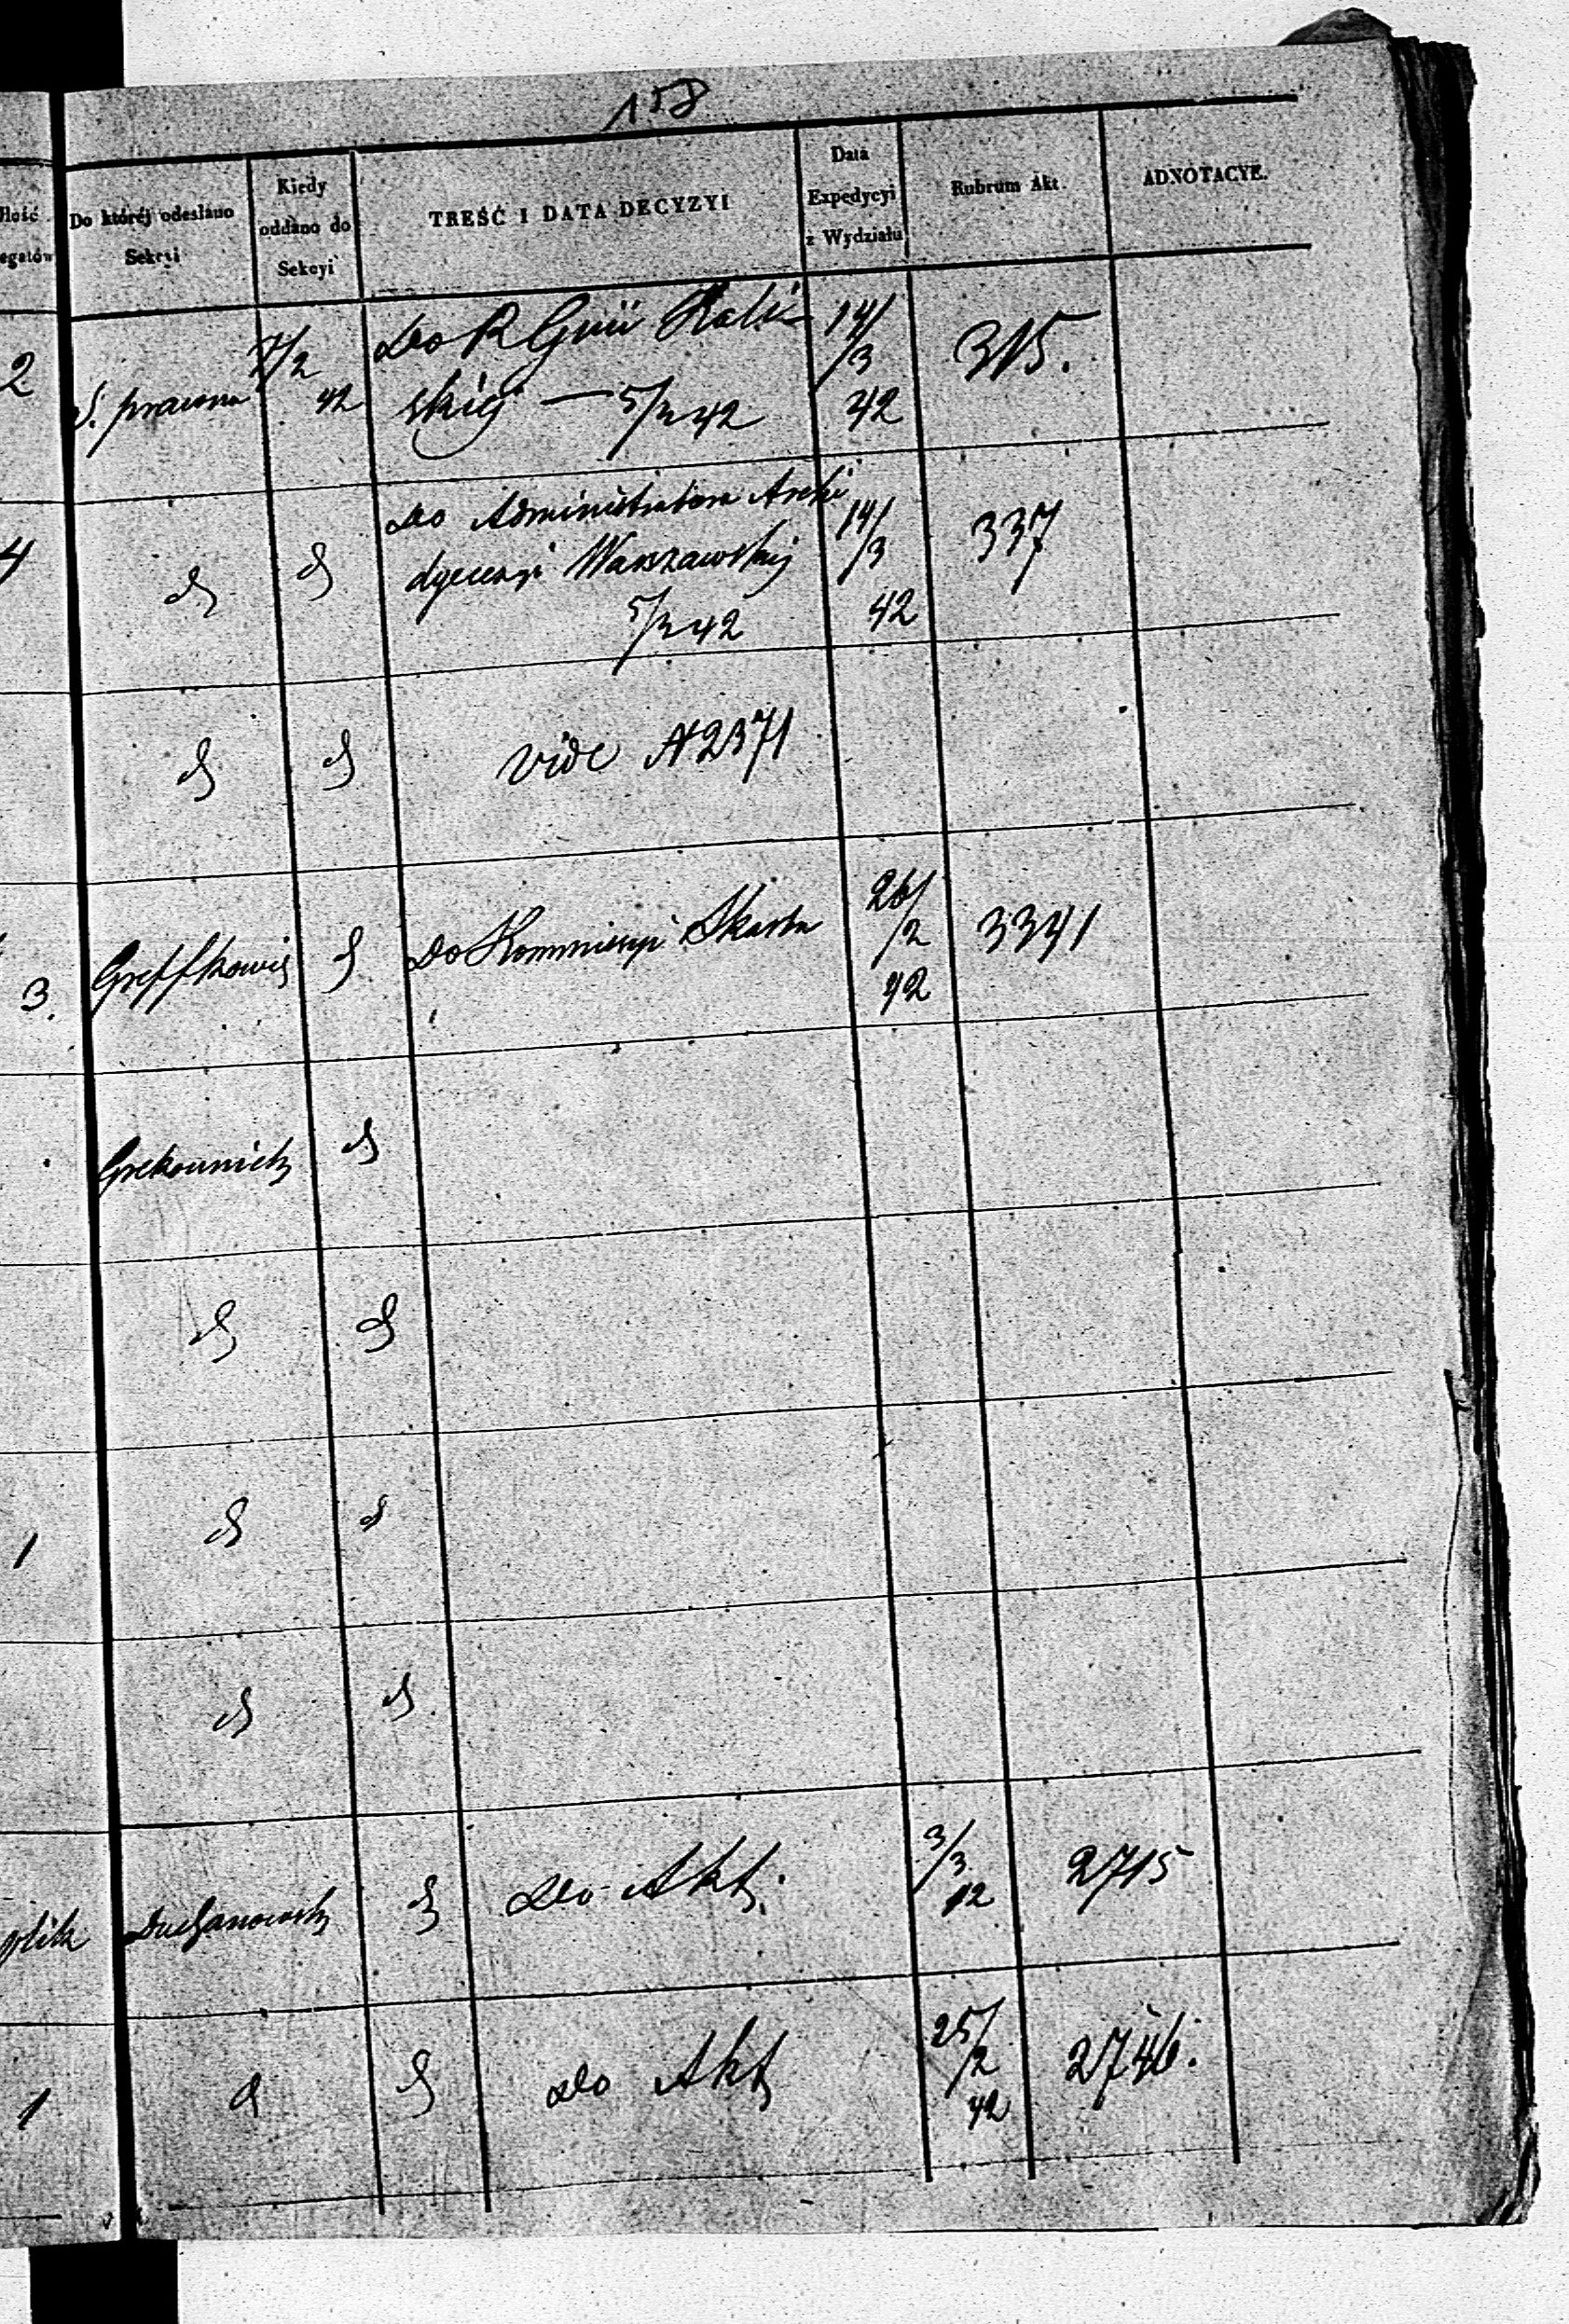 158
Ilość
egatów
Do któréj odesłano
Sekcyi
Kiedy
oddano do
Sekcyi
TREŚĆ I DATA DECYZYI
Data
Expedycyi
z Wydziału
Rubrum Akt.
ADNOTACYE.
2
S. prawna
7/2
42
Do R Gnii Kali
skiej — 5/3 42
14/
/3
42
315.
4
Do Administratora Archi
dyecezyi Warszawskiej
5/3 42
14/
/3
42
337
vide N 2371
3.
Do Kommissyi Skarbu
26/
/2
42
3341
1
Do Akt.
3/
/3
42
2715
1
Do Akt
25/
/2
42
2746.